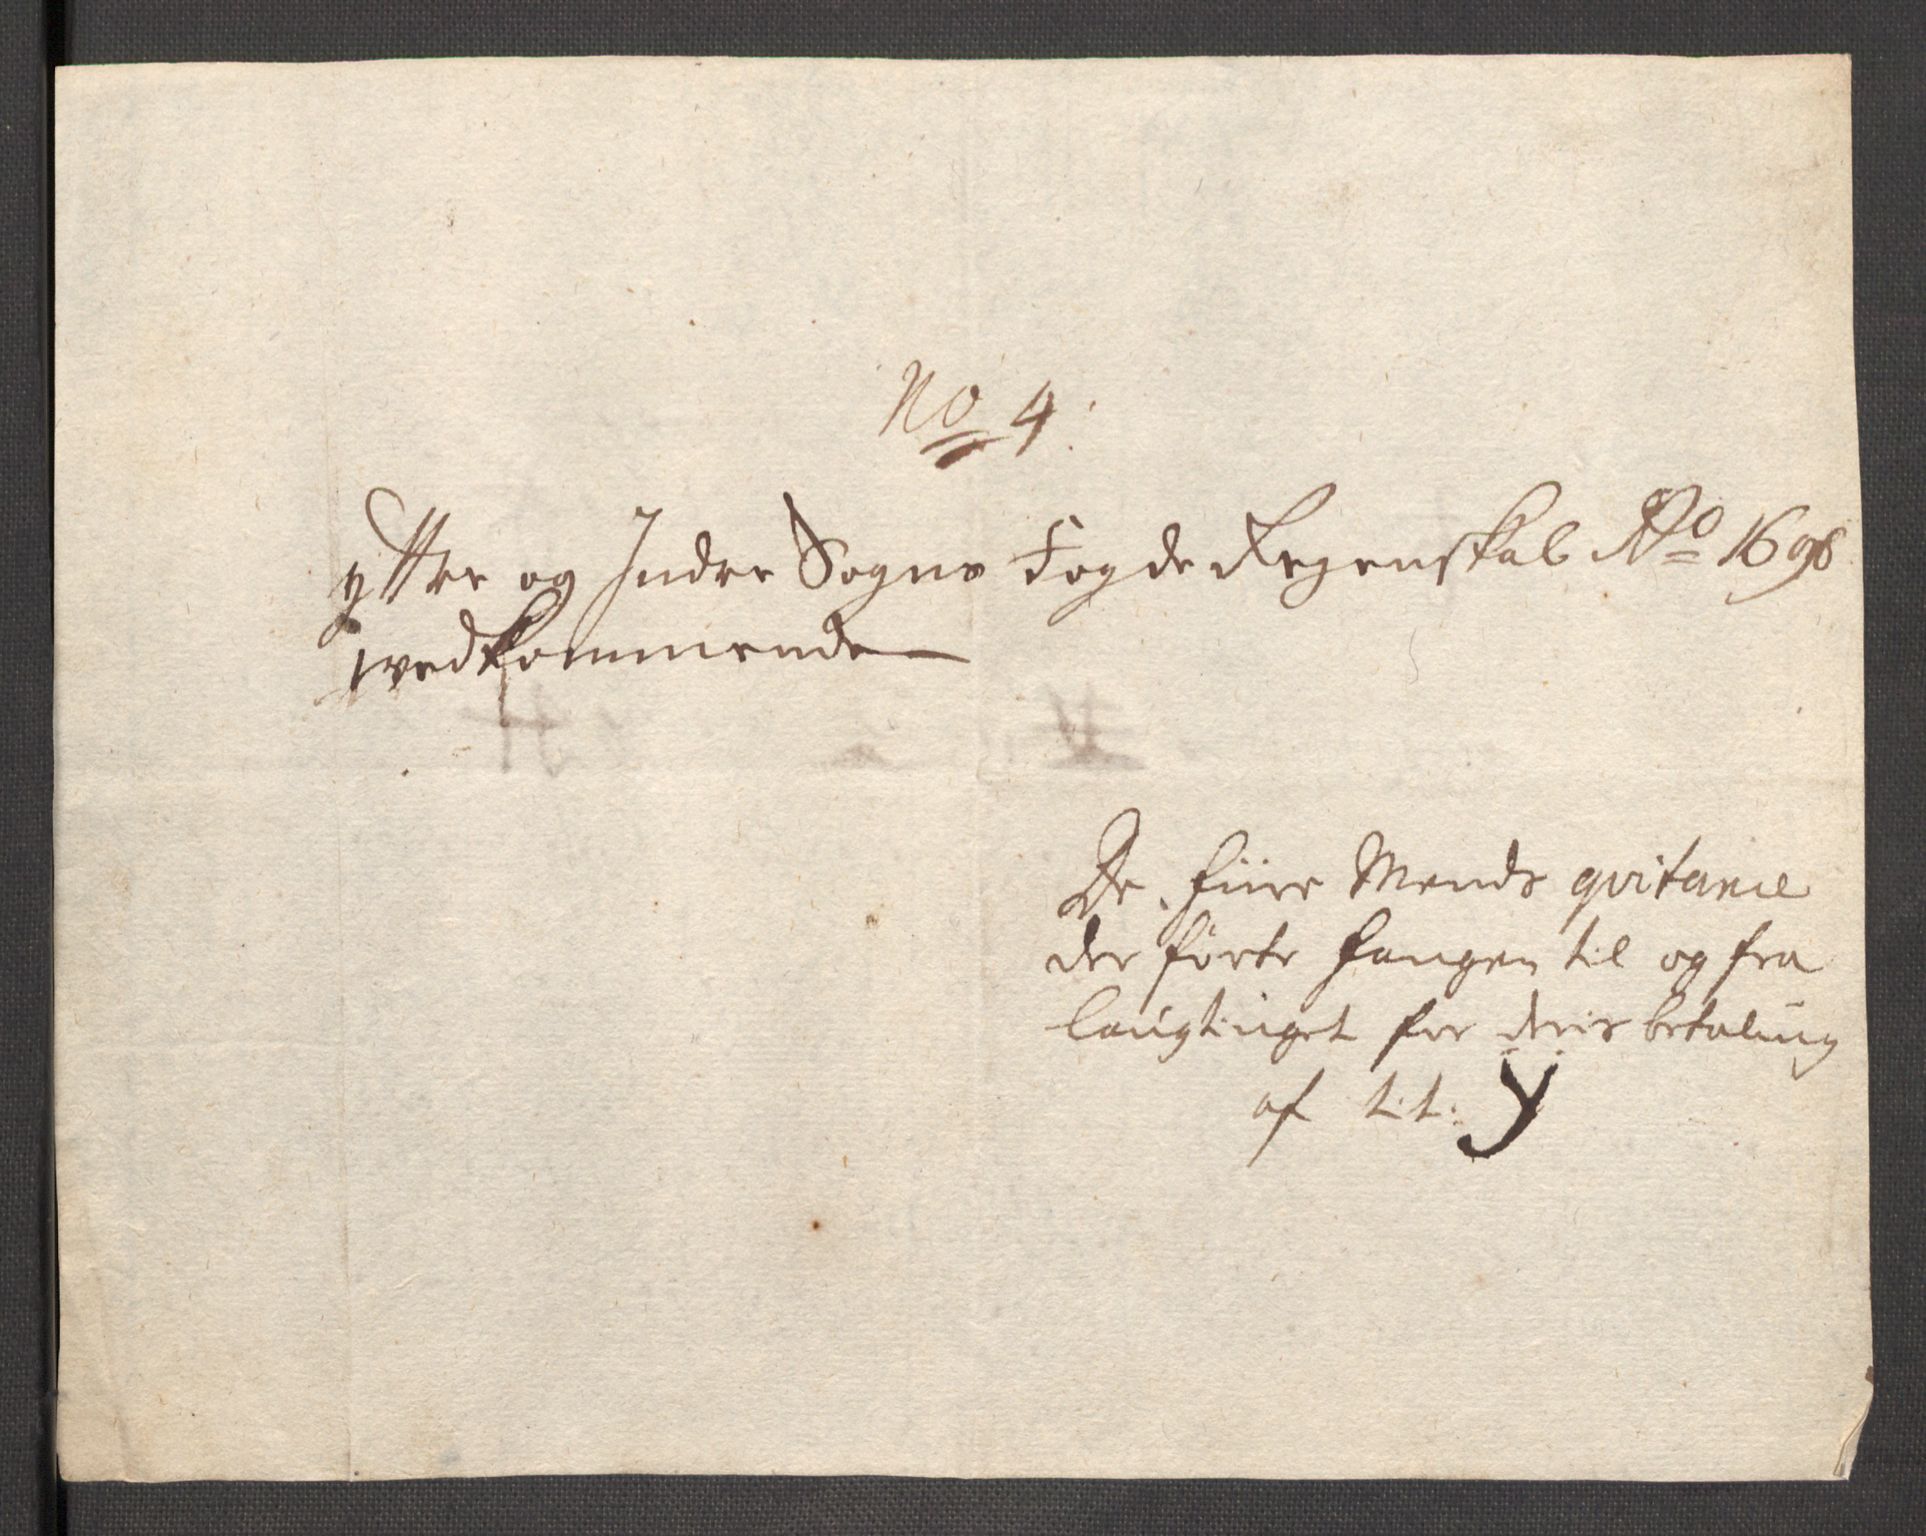 No 4:
yttre og Indre Sogns Fogde Regenskab Ao 1698
wedkommende
De fiire Mends qvitancie
der førte fangen til og fra
laugtinget for deris betaling
af t: t: Y